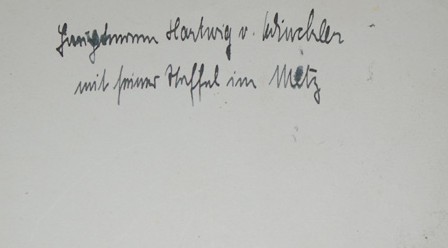 Hauptmann Hartwig v. Winckler
mit seiner Staffel im Metz